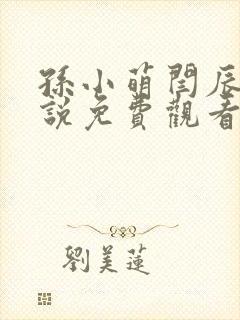 孫小萌閆辰
說免費觀看
劉美蓮